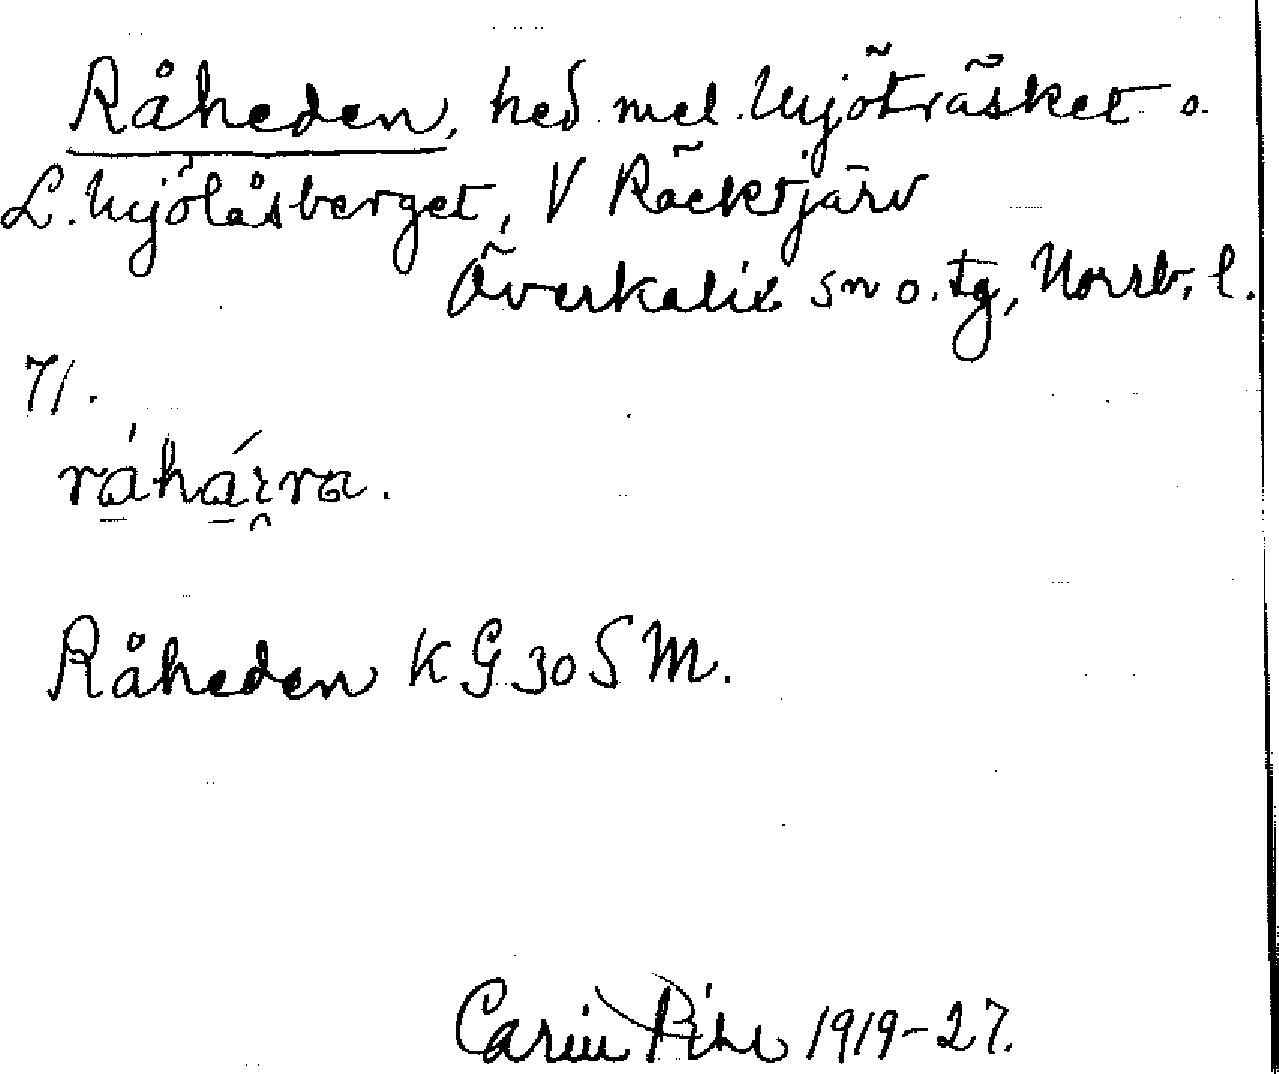 Råheden, hed mel. Mjöträsket o.
L. Mjölåsberget, V Räcktjärv
Överkalix sn o. tg, Norrb. l.
71.
ráhá̱ɽra.
Råheden KG 30 SM.
Carin Pihl 1919-27.